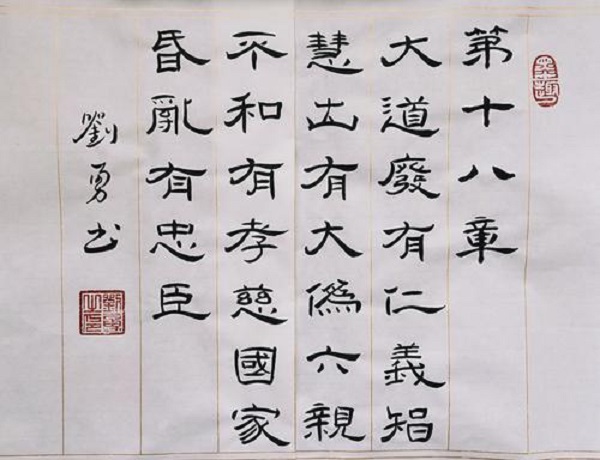 第十八章
大道廢有仁義智
慧出有大僞六親
不和有孝慈國家
昏亂有忠臣
劉勇书